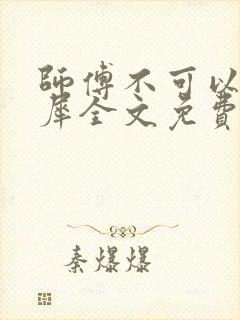 師傅不可以
犀全文免費
秦爆爆